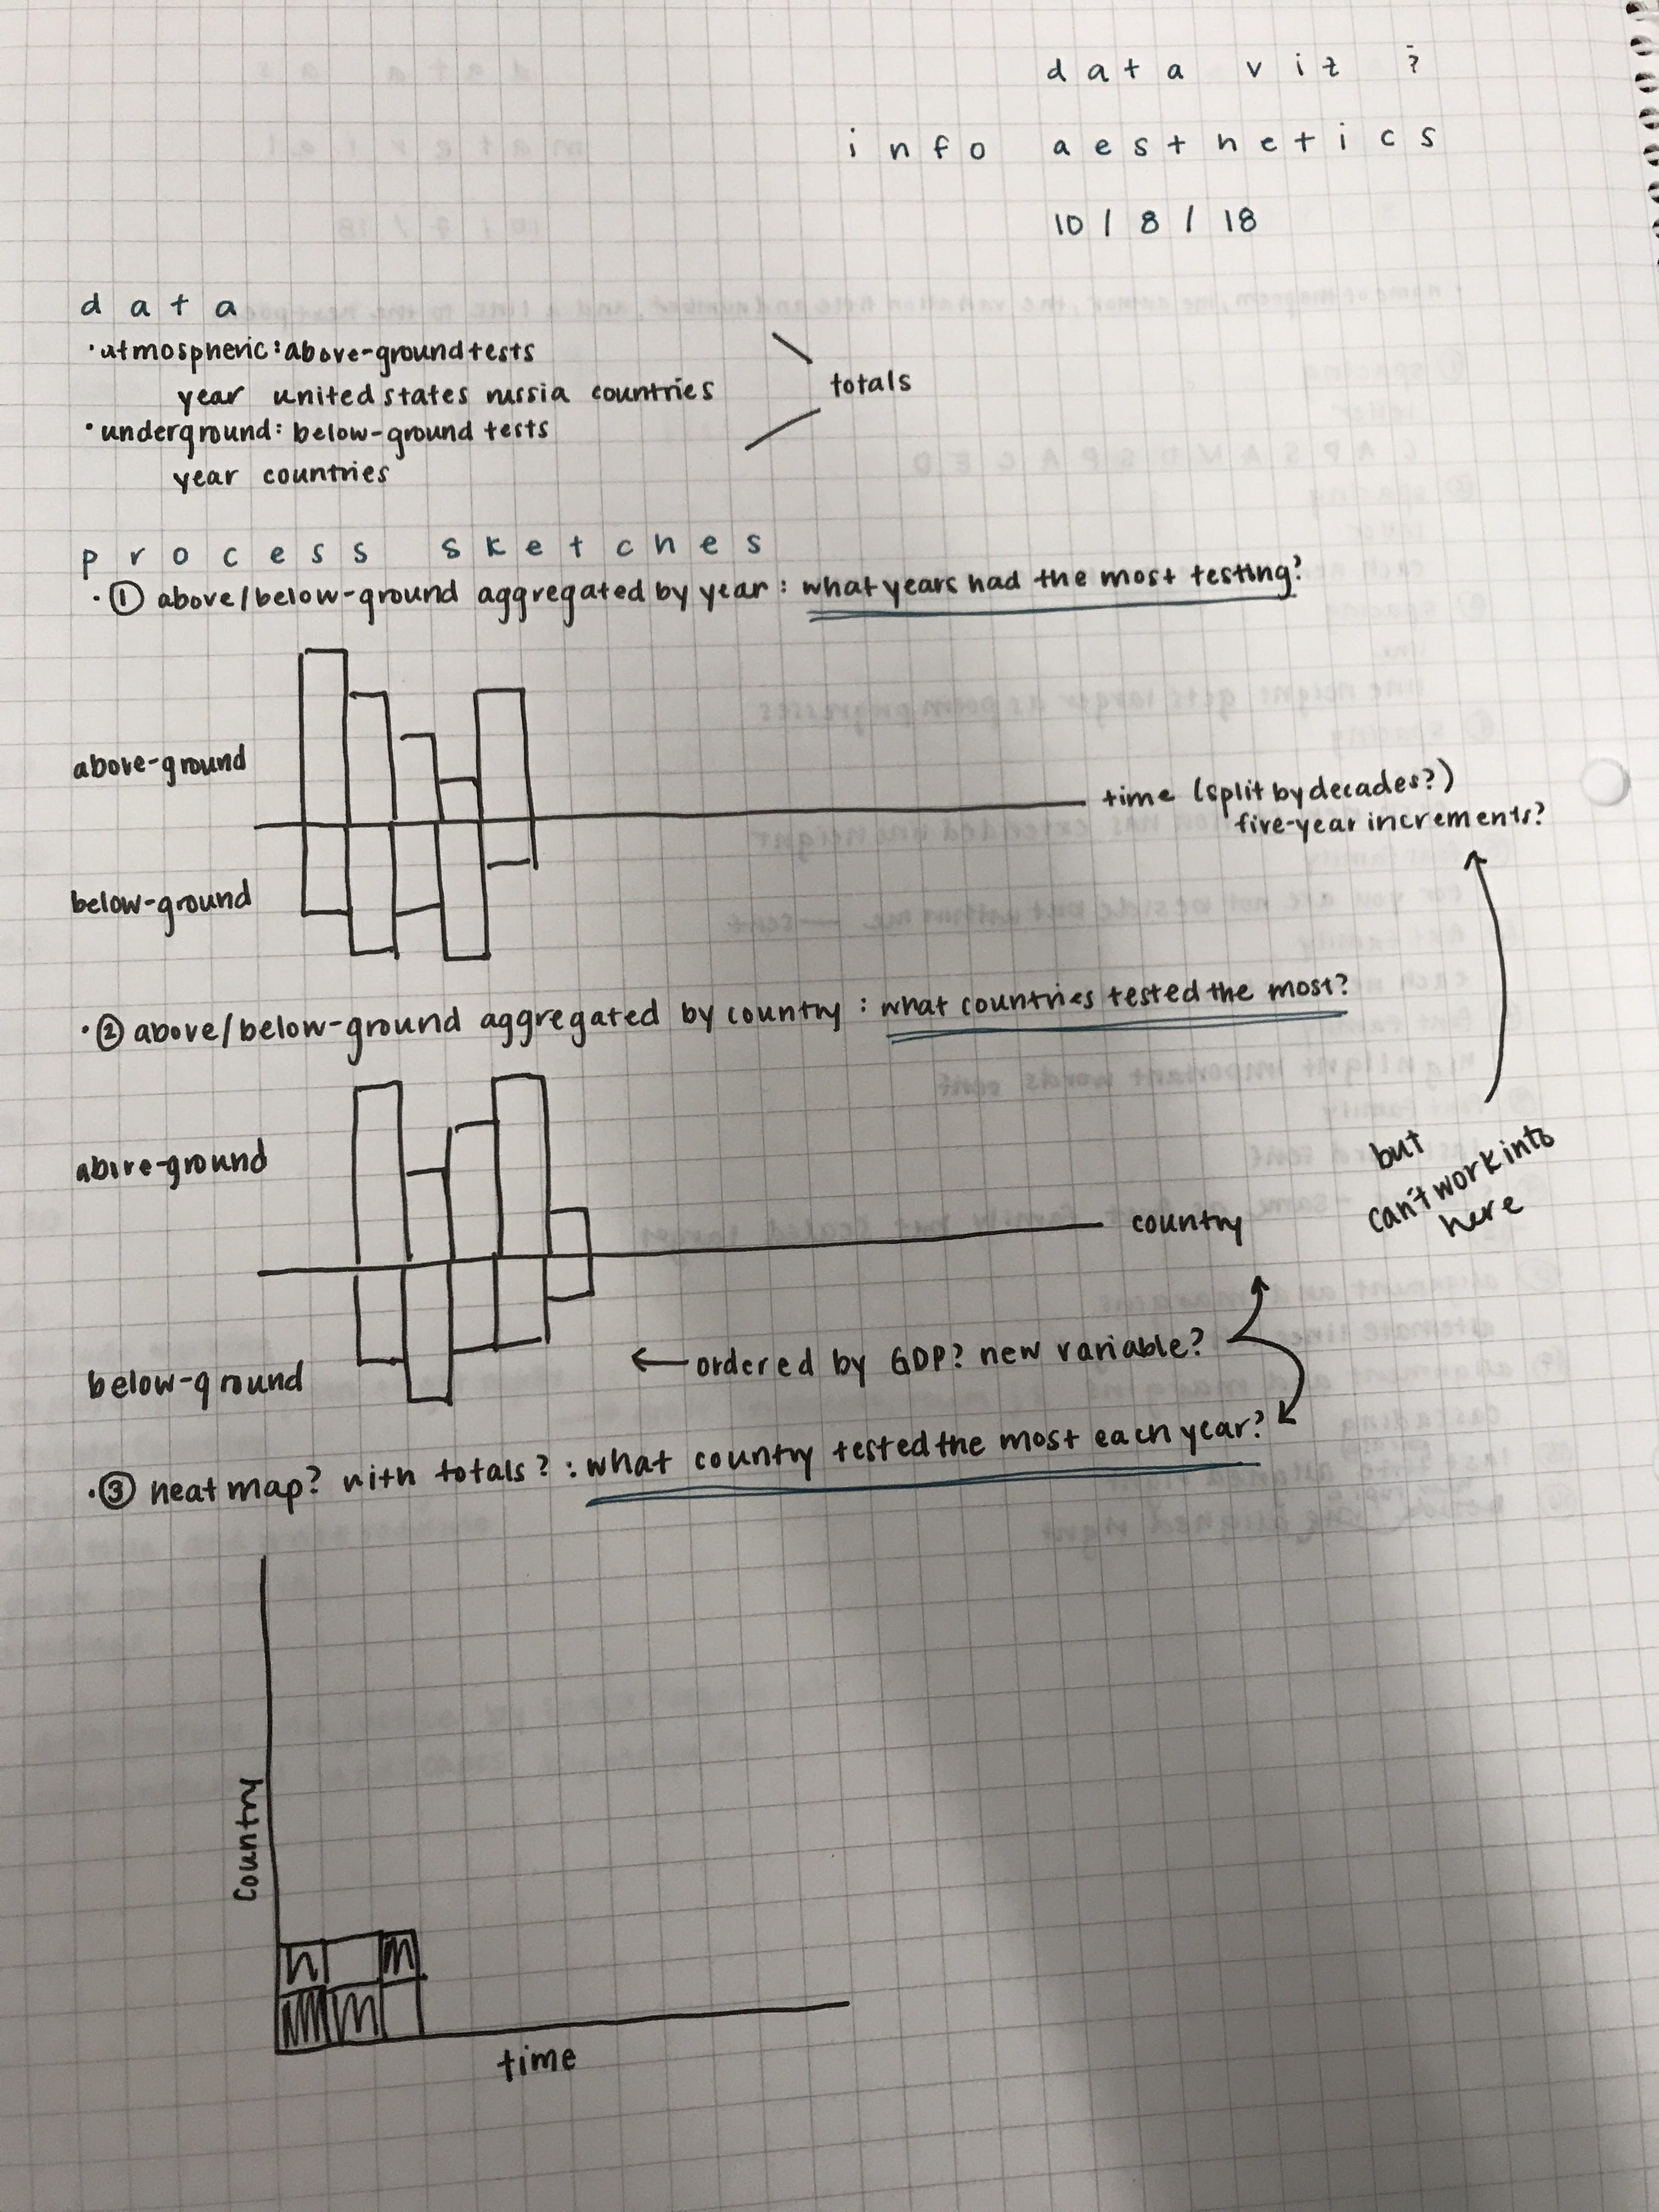 data viz ?
info aesthetics
10 / 8 / 18
data
· atmospheric: above-ground tests
year united states russia countries
totals
· underground: below-ground tests
year countries
process sketches
· ① above/below-ground aggregated by year: what years had the most testing?
above-ground
time (split by decades?)
five-year increments?
below-ground
· ② above/below-ground aggregated by country: what countries tested the most?
above-ground
but
can't work into
here
country
← ordered by GDP? new variable?
below-ground
· ③ heat map? with totals?: what country tested the most each year?
Country
time